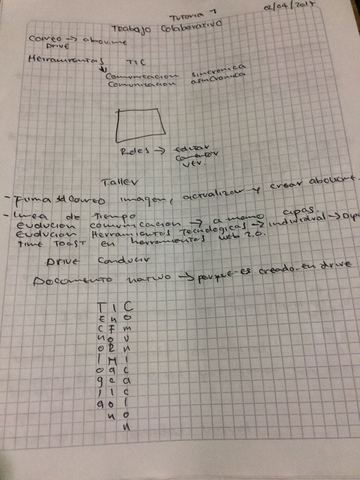 Tutoria 1
02/04/2017
Trabajo Colaborativo
correo → aboutme
Drive
Herramientas TIC
Comunicacion sincronica
Comunicacion asincronica
Roles → editar
comentar
ver
Taller
- Firma del correo imagen, actualizar y crear aboutme.
- Linea de tiempo
evolucion comunicacion → a mano apas.
evolucion Herramientas Tecnologicas → individual →
time Toast en herramientas web 2.0.
Drive conducir
Documento nativo → porque es creado en drive
T I C
E N O
C F M
N O U
O R N
L M I
O A C
G C A
I I C
A O I
N O
N